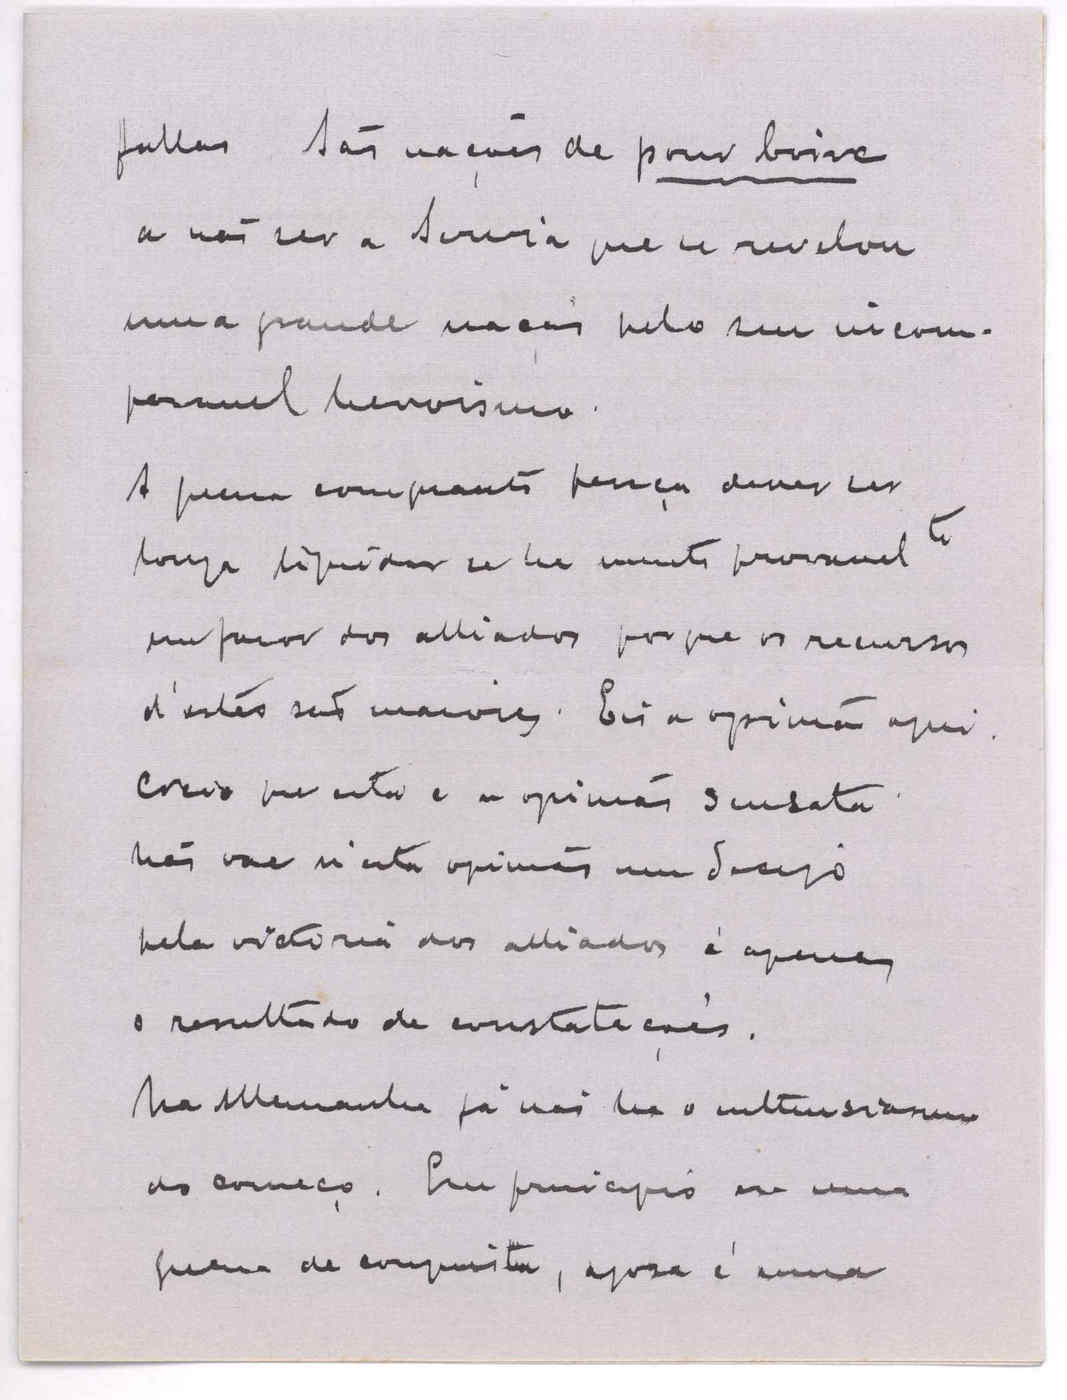 fallar São nações de pour boire
a não ser a Servia que se revelou
uma grande nação pelo seu incom-
paravel heroismo.
A guerra emquanto pareça dever ser
longa liquidar se ha muito provavel te
em favor dos alliados porque os recursos
d'estes são maiores. Eis a opinião aqui.
Creio que esta é a opinião sensata.
Não vae n'esta opinião um desejo
pela victoria dos alliados é apenas
o resultado de constatações.
Na Allemanha já não ha o enthusiasmo
do começo. Em principio era uma
guerra de conquista, agora é uma